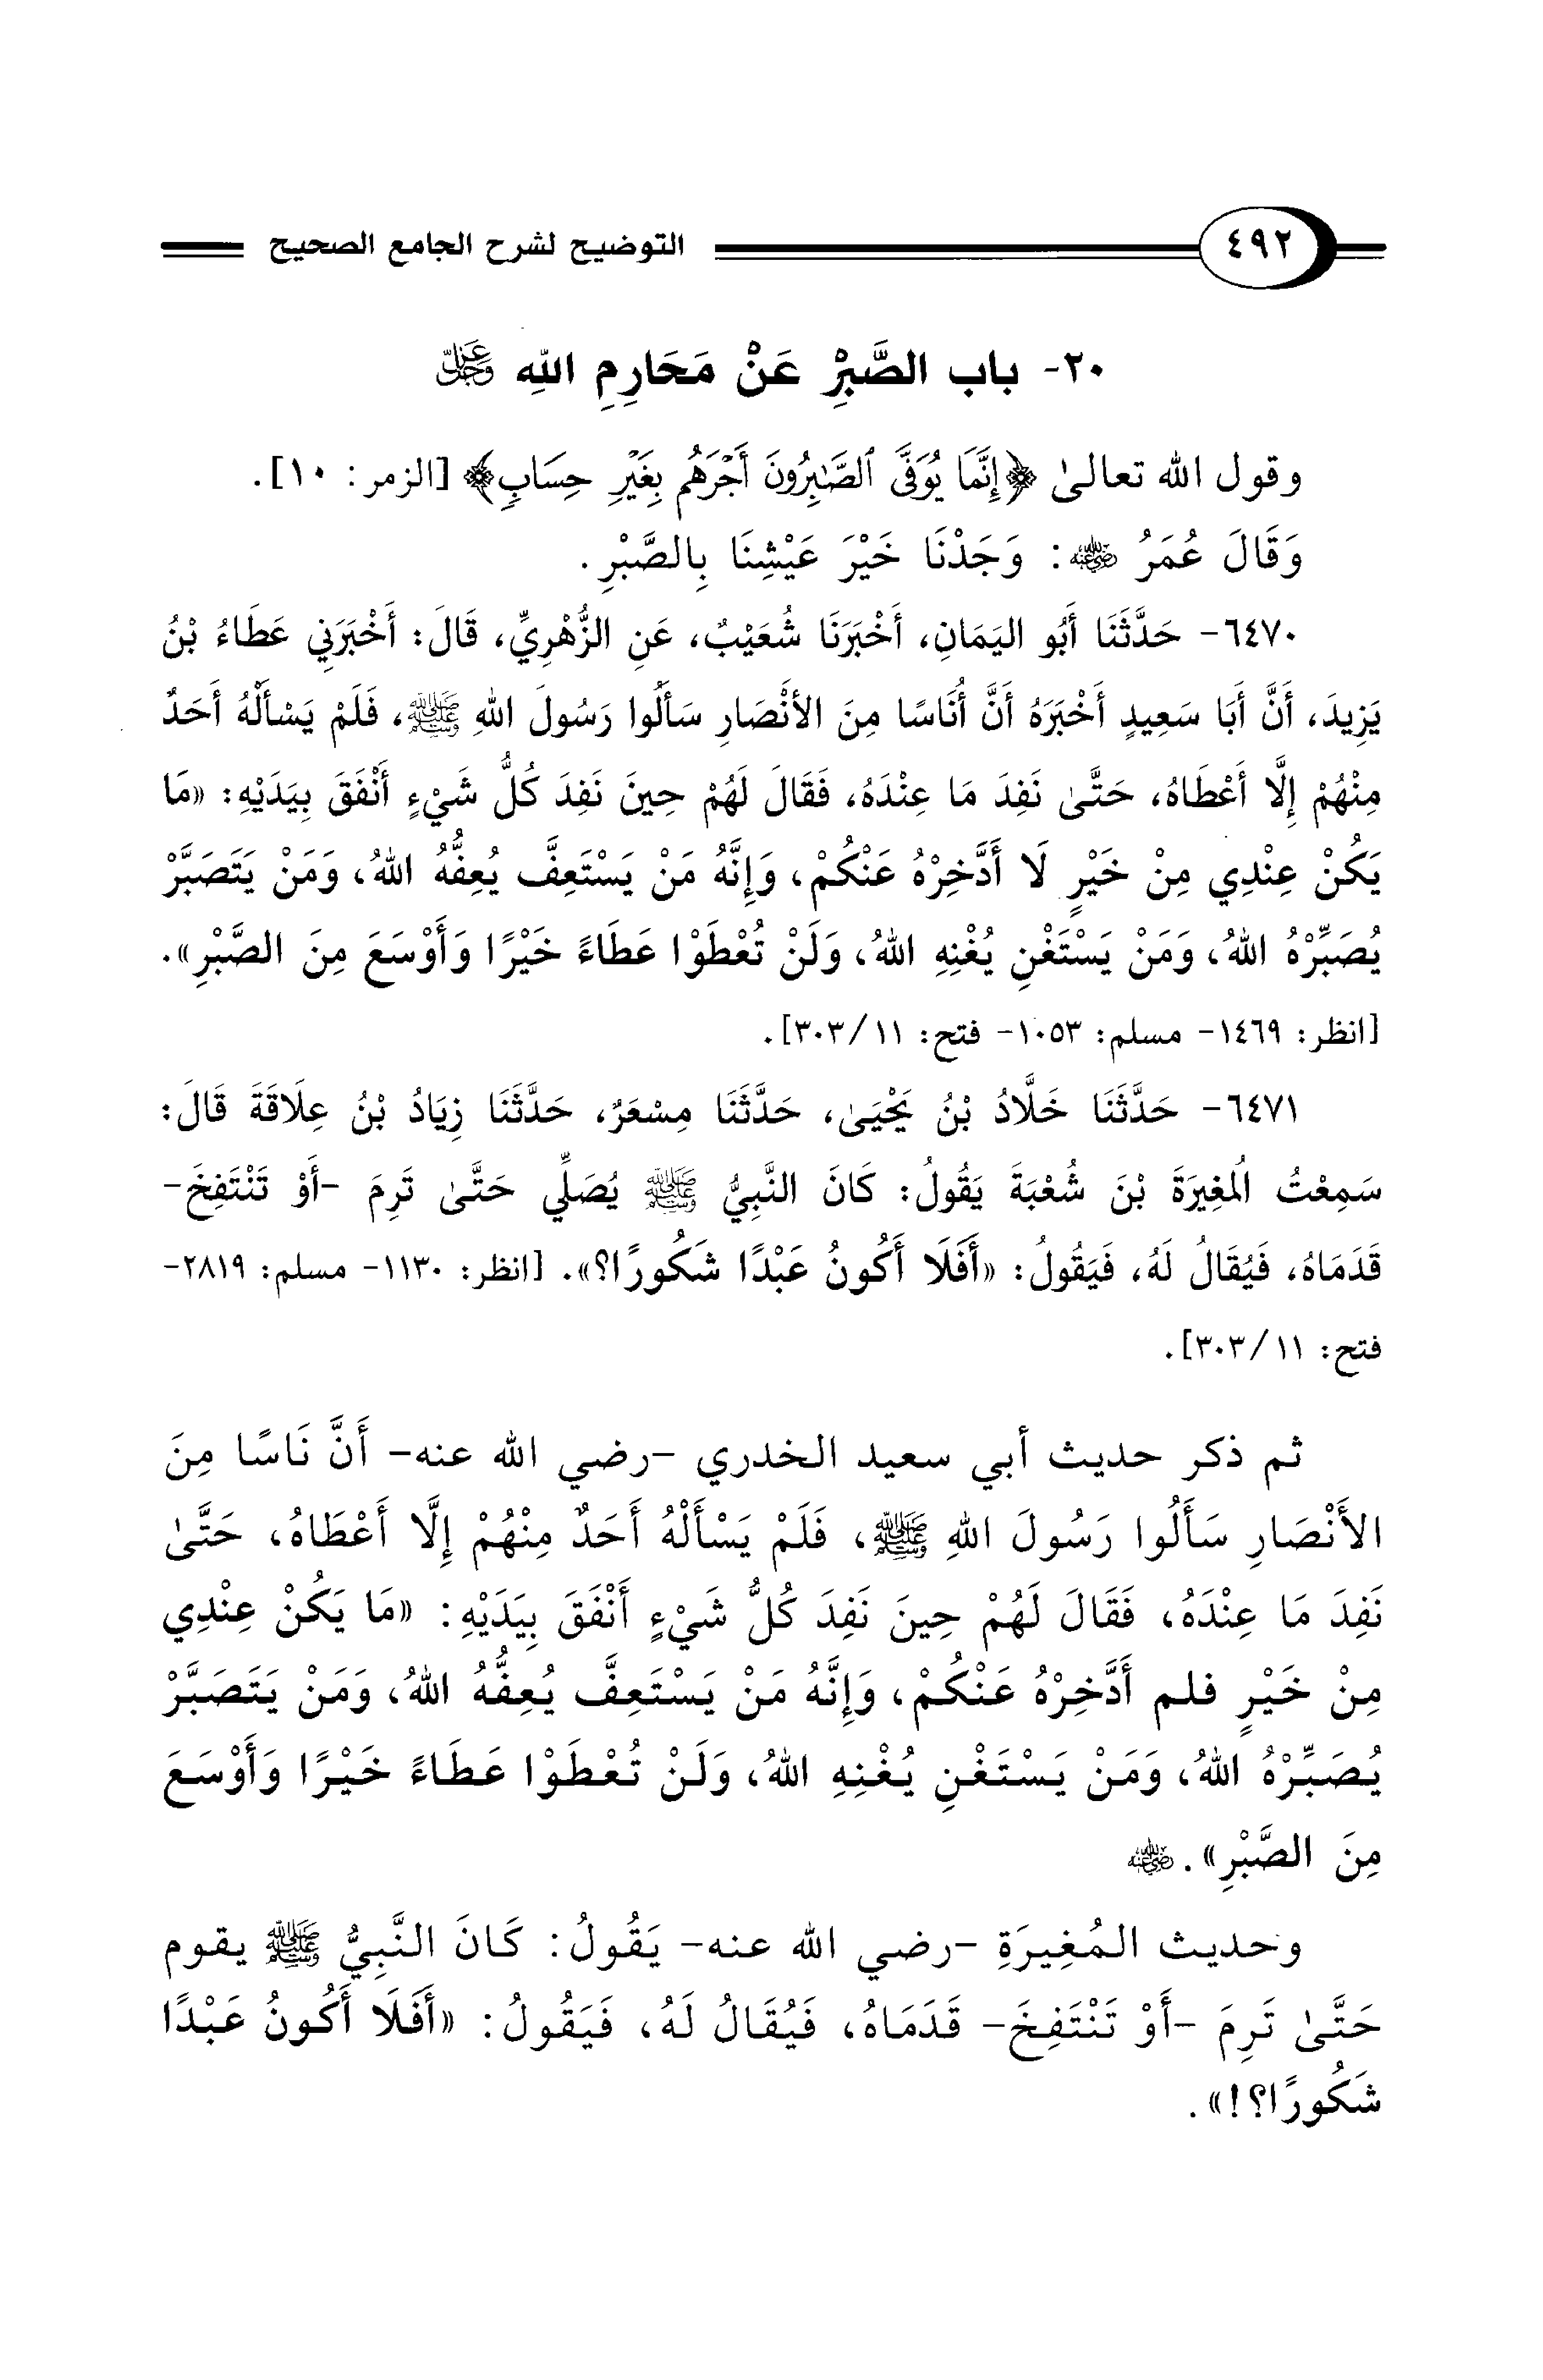 ٤٩٢ التوضيح لشرح الجامع الصحيح
٢٠- باب الصَّبْرِ عَنْ مَحَارِمِ اللهِ عَزَّ وَجَلَّ
وقول الله تعالىٰ ﴿إِنَّمَا يُوَفَّى ٱلصَّٰبِرُونَ أَجْرَهُم بِغَيْرِ حِسَابٍ﴾ [الزمر: ١٠].
وَقَالَ عُمَرُ رضي الله عنه: وَجَدْنَا خَيْرَ عَيْشِنَا بِالصَّبْرِ.
٦٤٧٠- حَدَّثَنَا أَبُو اليَمَانِ، أَخْبَرَنَا شُعَيْبٌ، عَنِ الزُّهْرِيِّ، قَالَ: أَخْبَرَنِي عَطَاءُ بْنُ
يَزِيدَ، أَنَّ أَبَا سَعِيدٍ أَخْبَرَهُ أَنَّ أُنَاسًا مِنَ الأَنْصَارِ سَأَلُوا رَسُولَ اللهِ ﷺ، فَلَمْ يَسْأَلْهُ أَحَدٌ
مِنْهُمْ إِلَّا أَعْطَاهُ، حَتَّىٰ نَفِدَ مَا عِنْدَهُ، فَقَالَ لَهُمْ حِينَ نَفِدَ كُلُّ شَيْءٍ أَنْفَقَ بِيَدَيْهِ: «مَا
يَكُنْ عِنْدِي مِنْ خَيْرٍ لَا أَدَّخِرْهُ عَنْكُمْ، وَإِنَّهُ مَنْ يَسْتَعِفَّ يُعِفُّهُ اللهُ، وَمَنْ يَتَصَبَّرْ
يُصَبِّرْهُ اللهُ، وَمَنْ يَسْتَغْنِ يُغْنِهِ اللهُ، وَلَنْ تُعْطَوْا عَطَاءً خَيْرًا وَأَوْسَعَ مِنَ الصَّبْرِ».
[انظر: ١٤٦٩- مسلم: ١٠٥٣- فتح: ١١/ ٣٠٣].
٦٤٧١- حَدَّثَنَا خَلَّادُ بْنُ يَحْيَىٰ، حَدَّثَنَا مِسْعَرٌ، حَدَّثَنَا زِيَادُ بْنُ عِلَاقَةَ قَالَ:
سَمِعْتُ المُغِيرَةَ بْنَ شُعْبَةَ يَقُولُ: كَانَ النَّبِيُّ ﷺ يُصَلِّي حَتَّىٰ تَرِمَ -أَوْ تَنْتَفِخَ-
قَدَمَاهُ، فَيُقَالُ لَهُ، فَيَقُولُ: «أَفَلَا أَكُونُ عَبْدًا شَكُورًا؟». [انظر: ١١٣٠- مسلم: ٢٨١٩-
فتح: ١١/ ٣٠٣].
ثم ذكر حديث أبي سعيد الخدري -رضي الله عنه- أَنَّ نَاسًا مِنَ
الأَنْصَارِ سَأَلُوا رَسُولَ اللهِ ﷺ، فَلَمْ يَسْأَلْهُ أَحَدٌ مِنْهُمْ إِلَّا أَعْطَاهُ، حَتَّىٰ
نَفِدَ مَا عِنْدَهُ، فَقَالَ لَهُمْ حِينَ نَفِدَ كُلُّ شَيْءٍ أَنْفَقَ بِيَدَيْهِ: «مَا يَكُنْ عِنْدِي
مِنْ خَيْرٍ فلم أَدَّخِرْهُ عَنْكُمْ، وَإِنَّهُ مَنْ يَسْتَعِفَّ يُعِفُّهُ اللهُ، وَمَنْ يَتَصَبَّرْ
يُصَبِّرْهُ اللهُ، وَمَنْ يَسْتَغْنِ يُغْنِهِ اللهُ، وَلَنْ تُعْطَوْا عَطَاءً خَيْرًا وَأَوْسَعَ
مِنَ الصَّبْرِ». رضي الله عنه
وحديث المُغِيرَةِ -رضي الله عنه- يَقُولُ: كَانَ النَّبِيُّ ﷺ يقوم
حَتَّىٰ تَرِمَ -أَوْ تَنْتَفِخَ- قَدَمَاهُ، فَيُقَالُ لَهُ، فَيَقُولُ: «أَفَلَا أَكُونُ عَبْدًا
شَكُورًا؟!».